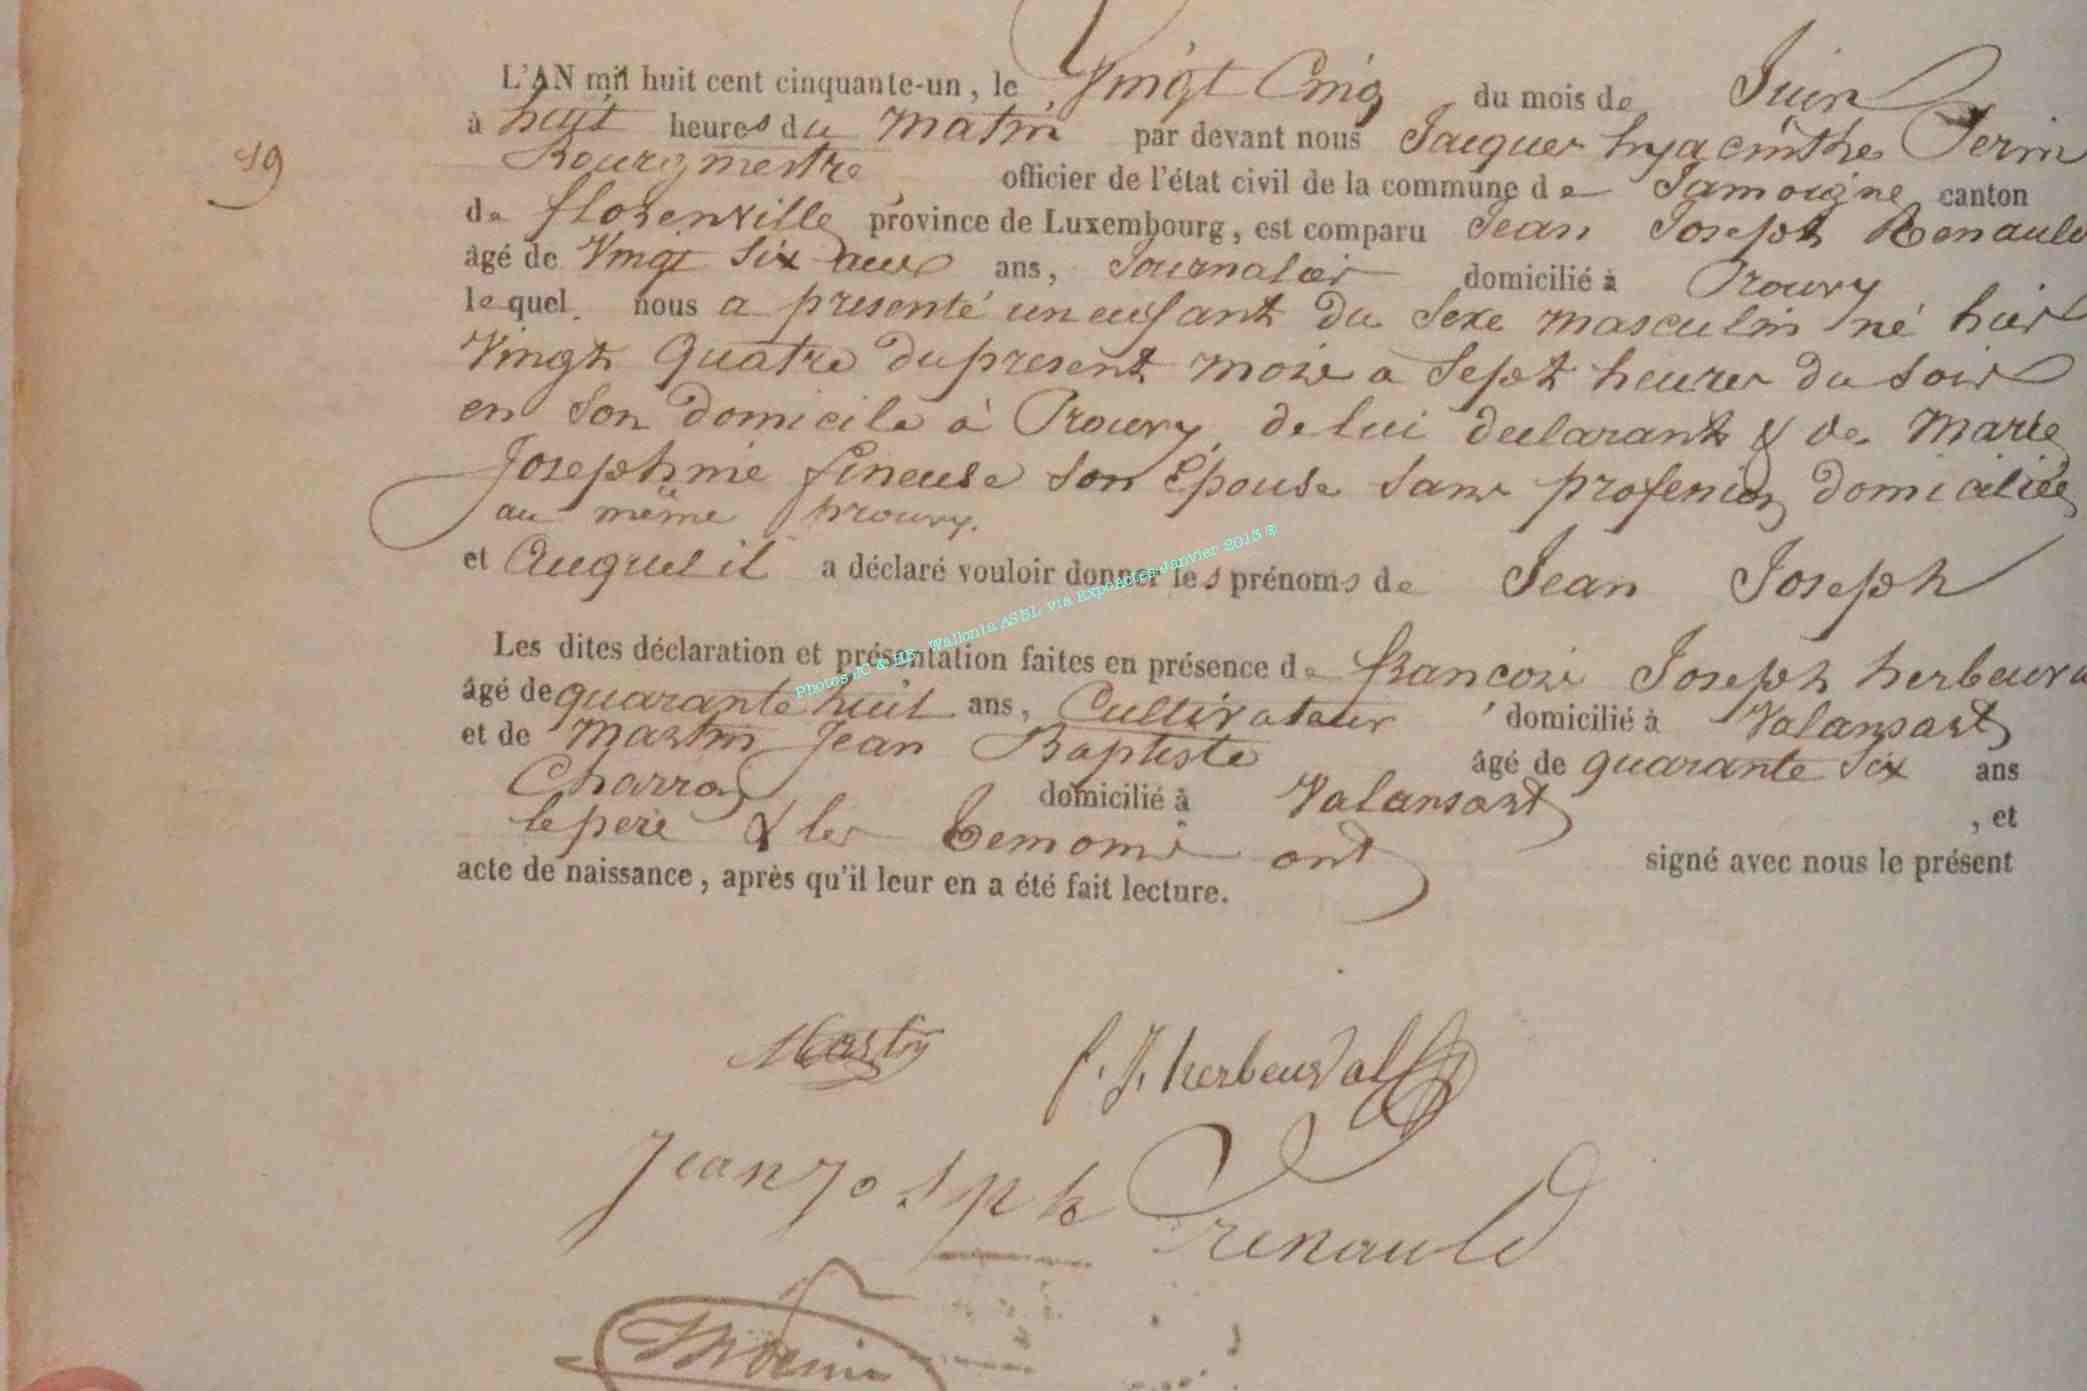 L'AN mil huit cent cinquante-un, le Vingt Cinq du mois de Juin
à huit heures du matin par devant nous Jacques hyacinthe
19
Bourgmestre officier de l'état civil de la commune de Jamoigne canton
de florenville province de Luxembourg, est comparu Jean Joseph Renauld
âgé de Vingt Six ans, Journalier domicilié à Prouvy
lequel nous a presenté un enfant du Sexe masculin né hier
Vingt Quatre du present mois a Sept heures du soir
en Son domicile à Prouvy, de lui declarant & de Marie
Josephine fineuse Son Epouse Sans profession domiciliée
au même prouvy.
et Auquel il a déclaré vouloir donner les prénoms de Jean Joseph
Les dites déclaration et présentation faites en présence de francois Joseph herbeuva
âgé de quarante huit ans, Cultivateur domicilié à Valansart
et de Martin Jean Baptiste âgé de quarante Six ans
Charron domicilié à Valansart, et
le pere & les temoins ont signé avec nous le présent
acte de naissance, après qu'il leur en a été fait lecture.
Photos JC & Wallonia ASBL via Expoactes Janvier 2015 ©
Martin f. J. herbeuval
Jean Josph renauld